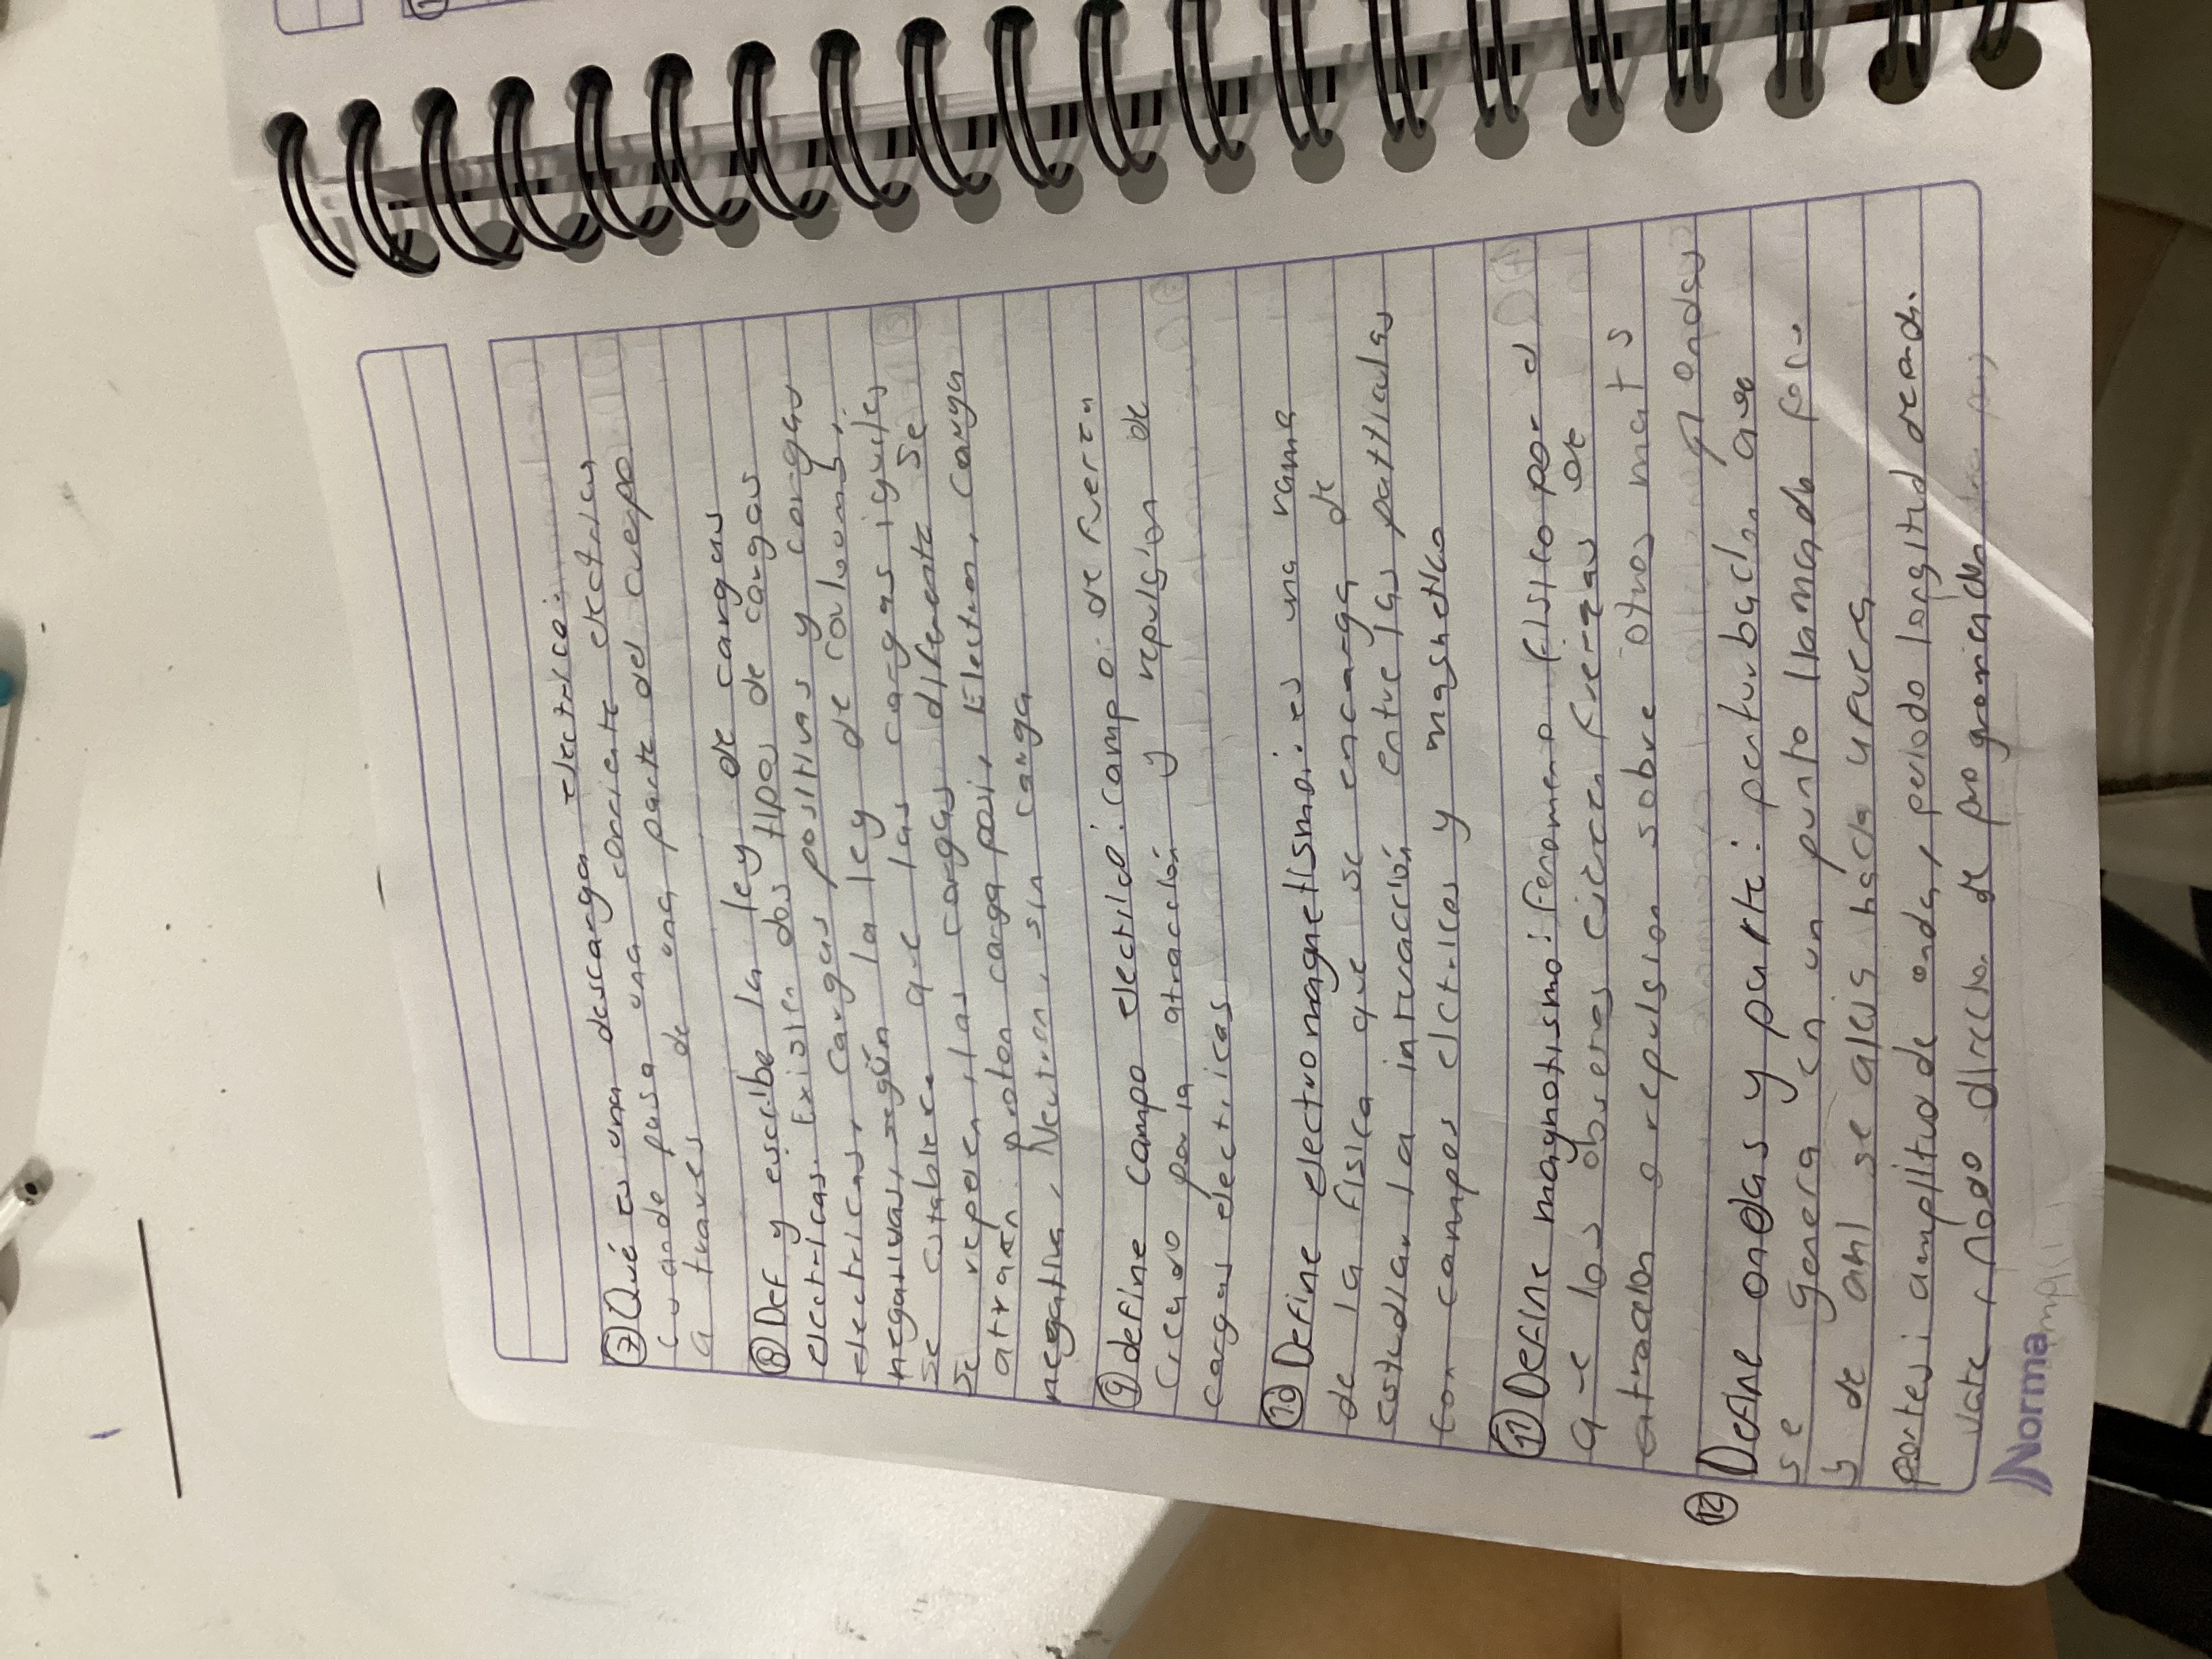 ⑦ Qué es una descarga electrica:
cuando pasa una corriente electricas
a traves de una parte del cuerpo
⑧ Def y escribe la ley de cargas
electricas. Existen dos tipos de cargas
electricas, cargas positivas y cargas
negativas, según la ley de couloumb,
se establece que las cargas iguales
se repelen, las cargas diferente se
atraén. proton carga posi, Electron, carga
negativa, Neutron, sin carga
⑨ define campo electrico: campo de fuerza
creado por la atracción y repulción de
cargas electricas
⑩ Define electromagnetismo: es una rama
de la fisica que se encarga de
estudiar la interacción entre las particulas
con campos electricos y magnetico
⑪ Define magnotismo: fenomeno fisico por el
que los observas fuerzas de
atracion o repulsion sobre otros mat s
⑫ Define ondas y parte: perturbación que
se genera en un punto llamado
y de ahi se aleja hacia
partes: amplitud de onda, periodo longitud de
nodo direcion de
Norma